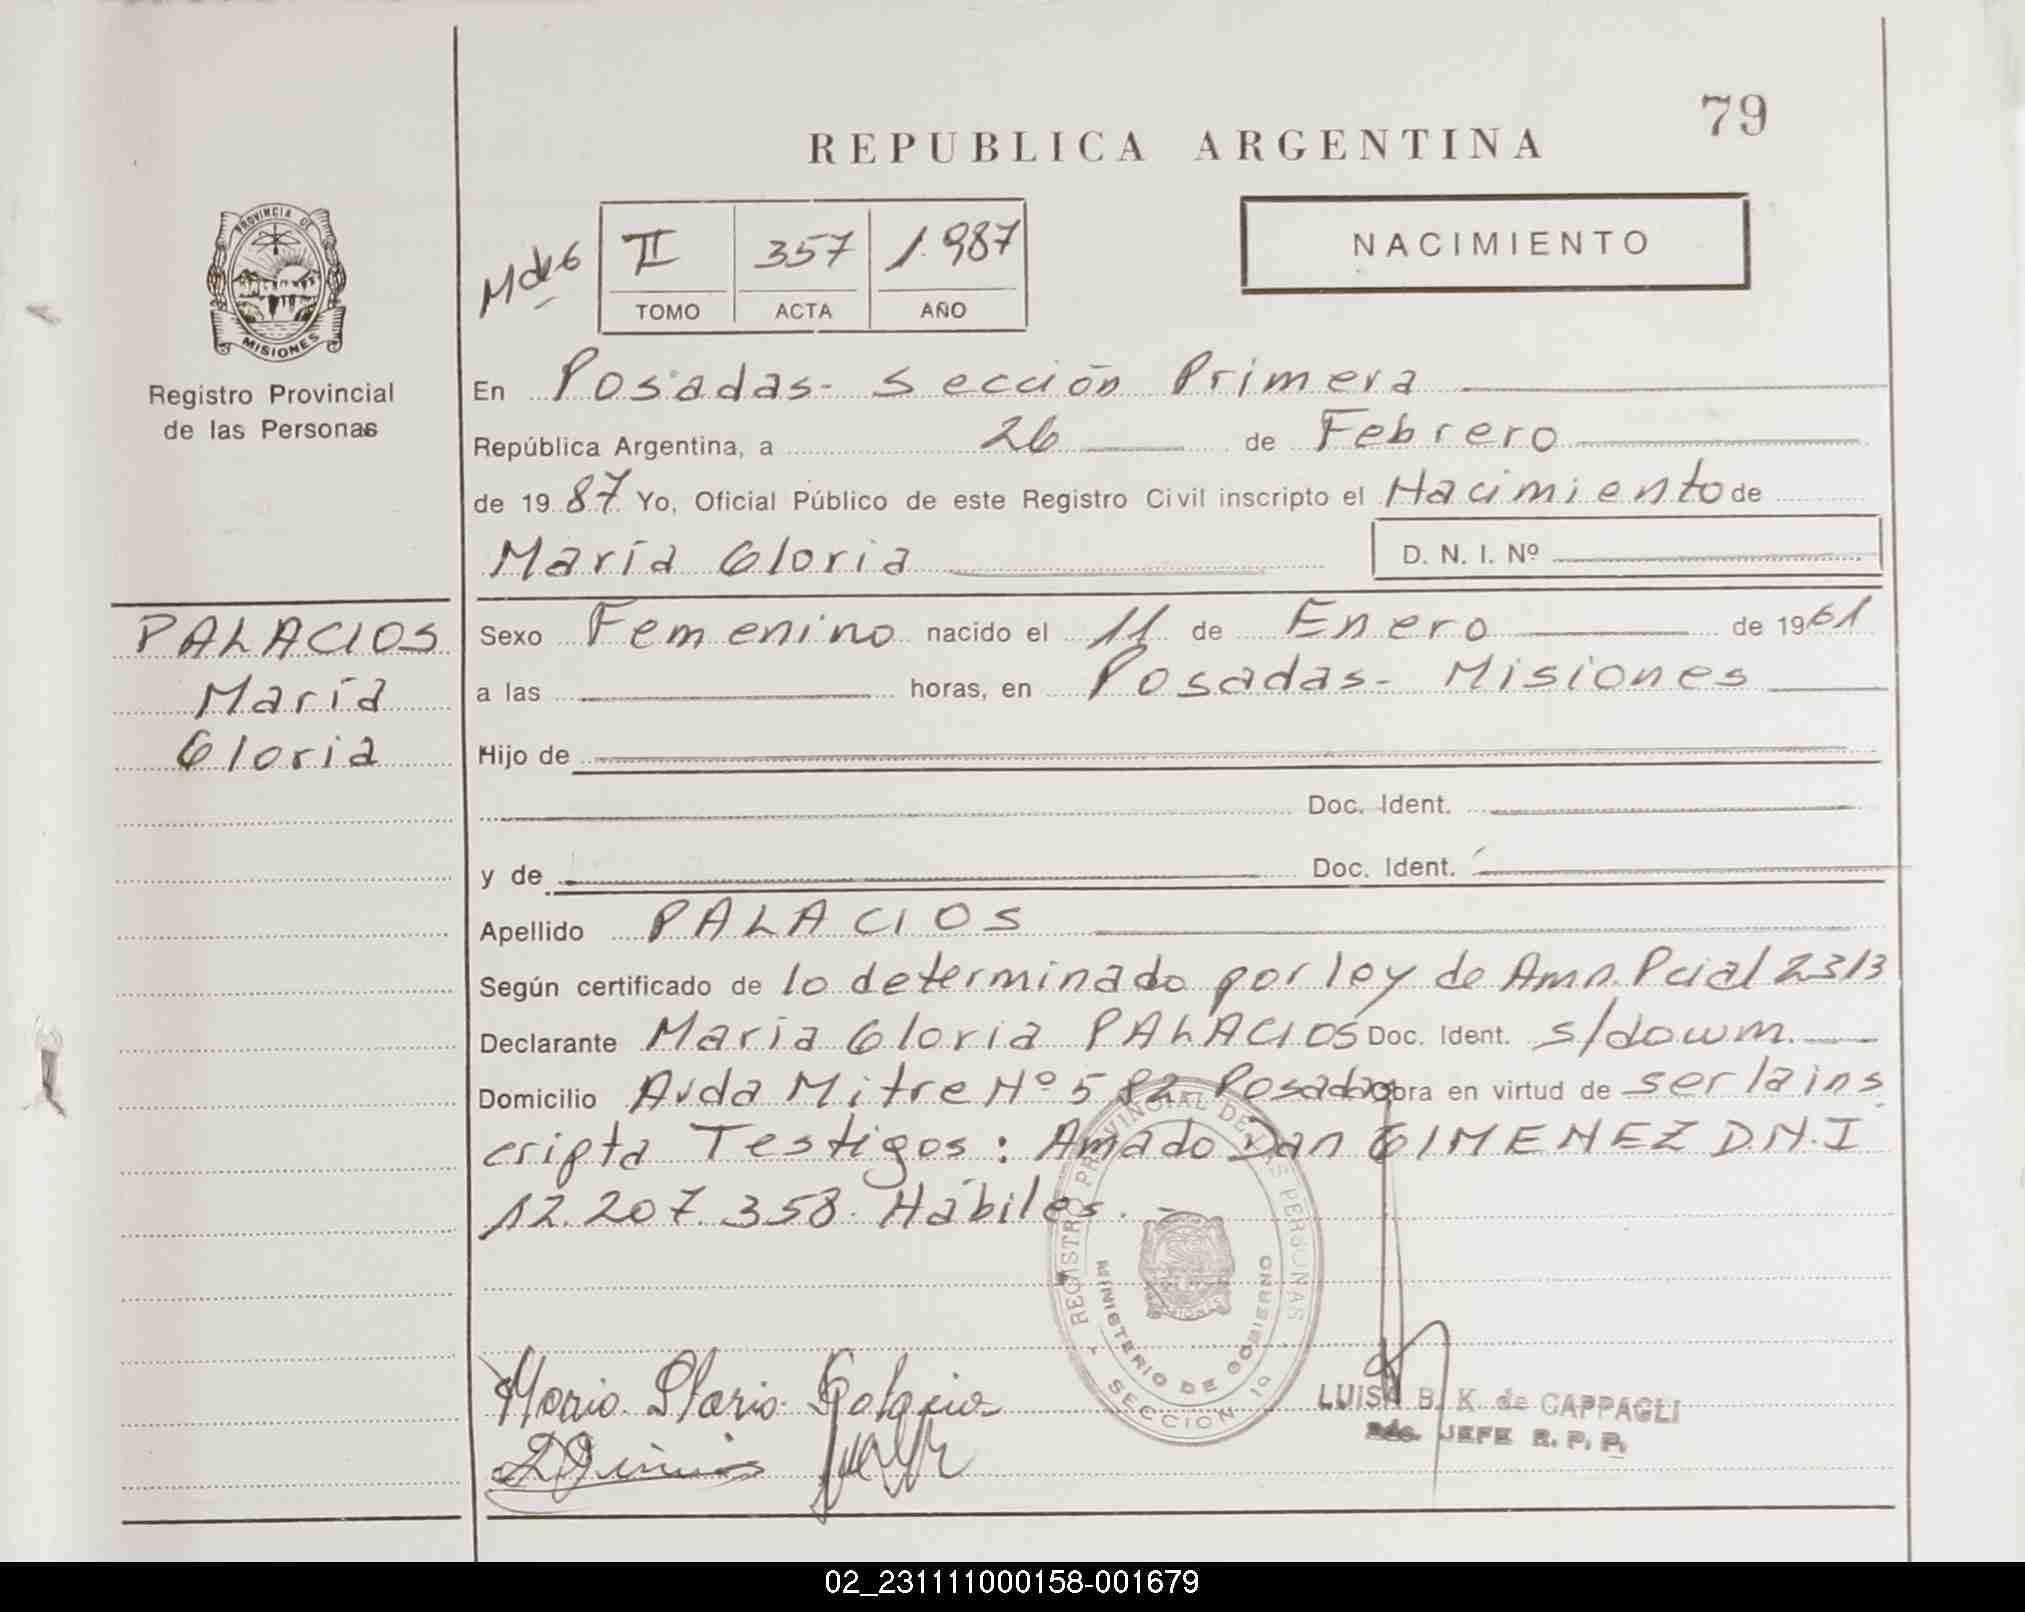 79
REPUBLICA ARGENTINA
PROVINCIA DE
MISIONES
Registro Provincial
de las Personas
II 357 1.987
TOMO ACTA AÑO
NACIMIENTO
En Posadas- Sección Primera
República Argentina, a 26 de Febrero
de 1987 Yo, Oficial Público de este Registro Civil inscripto el Nacimiento de
María Gloria D. N. I. Nº
PALACIOS
María
Gloria
Sexo Femenino nacido el 11 de Enero de 1961
a las horas, en Posadas- Misiones
Hijo de
Doc. Ident.
y de Doc. Ident.
Apellido PALACIOS
Según certificado de lo determinado por ley de Amn. Pcial 2313
Declarante María Gloria PALACIOS Doc. Ident. s/docum.
Domicilio Avda Mitre Nº 582 Posadas obra en virtud de ser la ins
cripta Testigos: Amado Dan GIMENEZ D.N.I
12.207.358. Hábiles.-
REGISTRO PROVINCIAL DE LAS PERSONAS
MINISTERIO DE GOBIERNO
SECCION 1a
LUISA B. K. de CAPPAGLI
JEFE R. P. P.
02_231111000158-001679